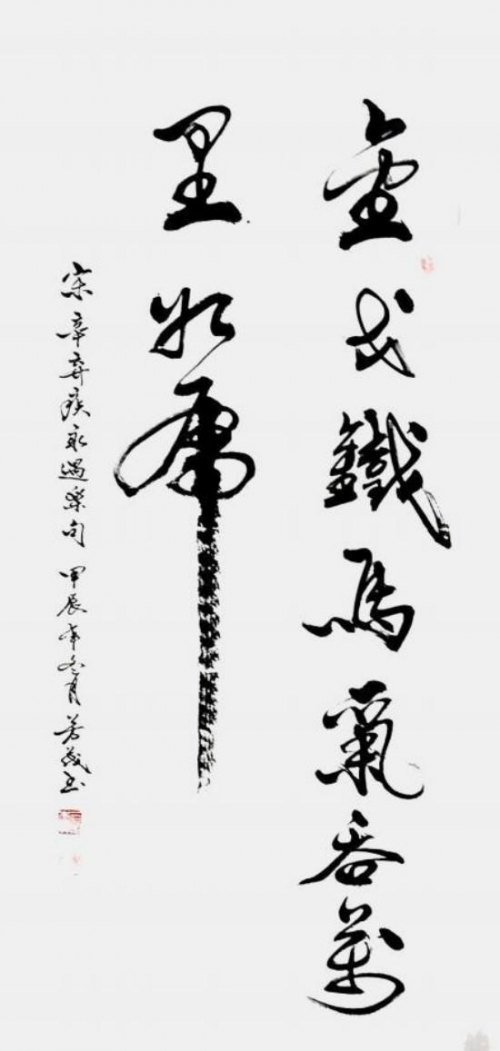 金戈鐵馬氣吞萬
里如虎
宋辛弃疾永遇樂句 甲辰年冬月 芳義书